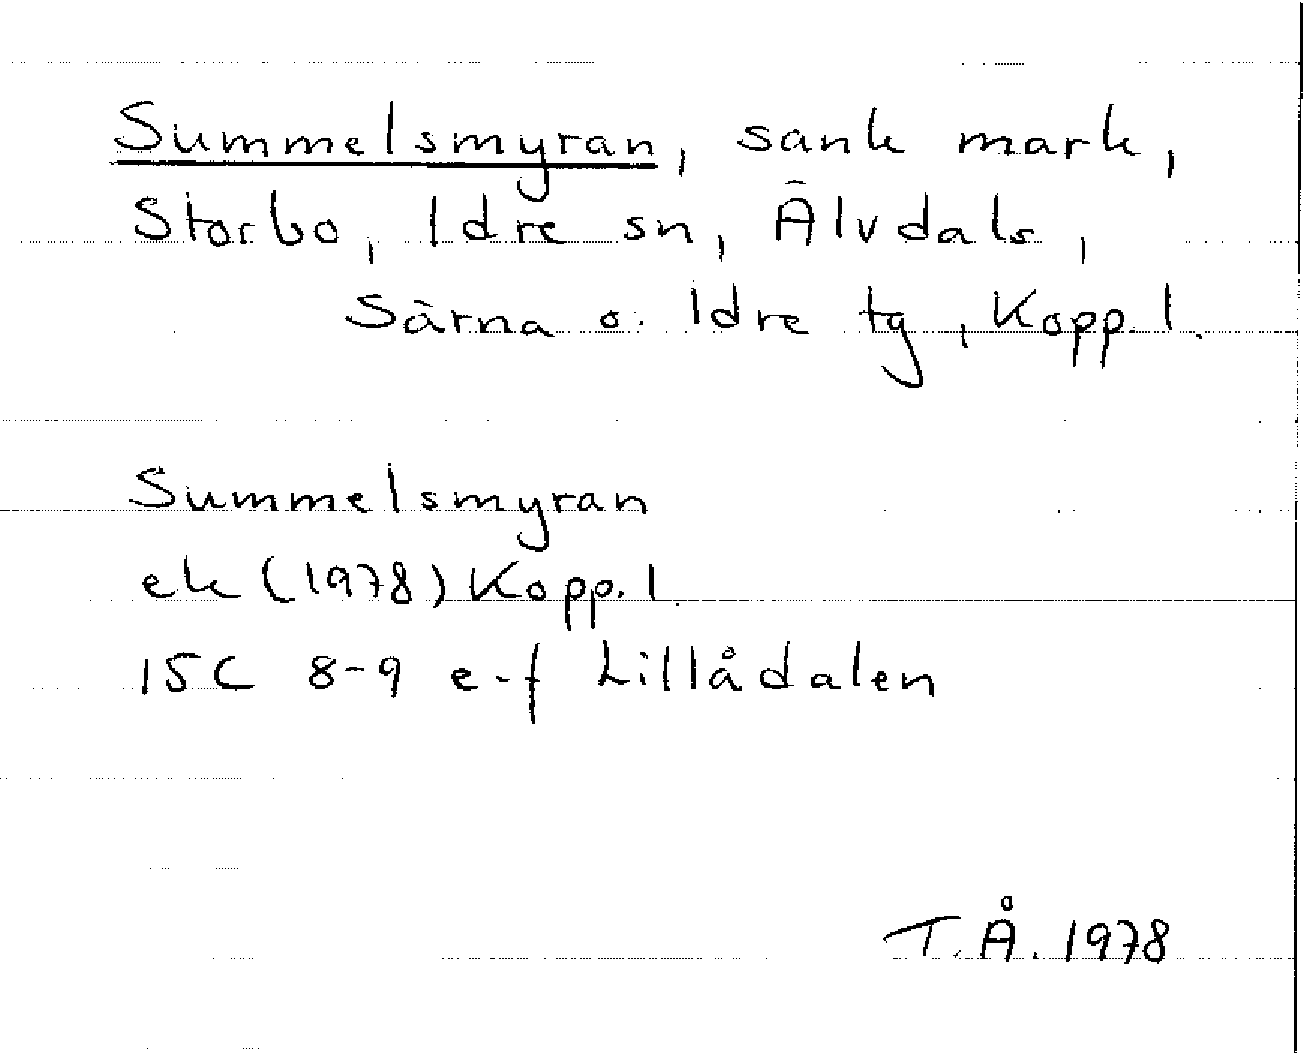 Summelsmyran, sank mark,
Storbo, Idre sn, Älvdals,
Särna o. Idre tg, Kopp. l.
Summelsmyran
ek (1978) Kopp. l.
15C 8-9 e-f Lillådalen
T.Å. 1978